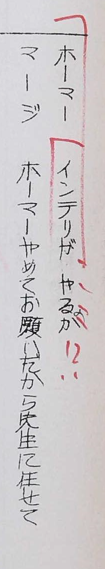 ホーマー　インテリが　やるか!?!!
マージ　ホーマーやめてお願いだから先生に任せて